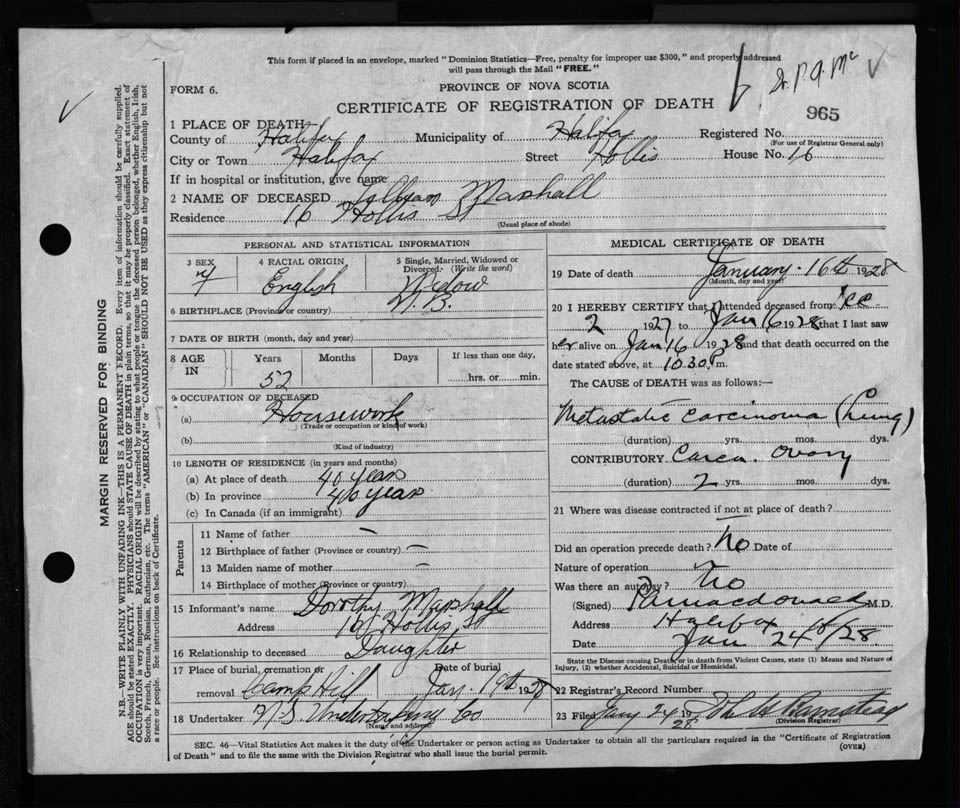 This form if placed in an envelope, marked "Dominion Statistics—Free, penalty for improper use $300," and properly addressed
will pass through the Mail "FREE."
FORM 6.
PROVINCE OF NOVA SCOTIA
CERTIFICATE OF REGISTRATION OF DEATH
965
1 PLACE OF DEATH
County of Halifax Municipality of Halifax Registered No.
(For use of Registrar General only)
City or Town Halifax Street Hollis House No. 16
If in hospital or institution, give name
2 NAME OF DECEASED Marshall
Residence 16 Hollis St
(Usual place of abode)
PERSONAL AND STATISTICAL INFORMATION
3 SEX 4 RACIAL ORIGIN 5 Single, Married, Widowed or
Divorced. (Write the word)
F English Widow
6 BIRTHPLACE (Province or country) N.B.
7 DATE OF BIRTH (month, day and year)
8 AGE IN Years Months Days If less than one day,
52 hrs. or min.
9 OCCUPATION OF DECEASED
(a) Housework
(Trade or occupation or kind of work)
(b)
(Kind of industry)
10 LENGTH OF RESIDENCE (in years and months)
(a) At place of death 40 years
(b) In province 40 years
(c) In Canada (if an immigrant)
Parents
11 Name of father —
12 Birthplace of father (Province or country) —
13 Maiden name of mother —
14 Birthplace of mother (Province or country)
15 Informant's name Dorothy Marshall
Address 16 Hollis St
16 Relationship to deceased Daughter
17 Place of burial, cremation or Date of burial
removal Camp Hill Jan. 19th 1928
18 Undertaker N.S. Undertaking Co
(Name and address)
MEDICAL CERTIFICATE OF DEATH
19 Date of death January 16th 1928
(Month, day and year)
20 I HEREBY CERTIFY that I attended deceased from Dec
2 1927 to Jan 16 1928 that I last saw
her alive on Jan 16 1928 and that death occurred on
date stated above, at 10.30 P.m.
The CAUSE of DEATH was as follows:—
Metastatic Carcinoma (Lung)
(duration) yrs. mos. dys.
CONTRIBUTORY Carci. Ovary
(duration) 2 yrs. mos. dys.
21 Where was disease contracted if not at place of death?
Did an operation precede death? No Date of
Nature of operation
Was there an autopsy? No
(Signed) Macdonald M.D.
Address Halifax
Date Jan 24th/28
State the Disease causing Death, or in death from Violent Causes, state (1) Means and Nature of
Injury, (2) whether Accidental, Suicidal or Homicidal.
22 Registrar's Record Number
23 Filed Jany 24 1928
(Division Registrar)
SEC. 46—Vital Statistics Act makes it the duty of the Undertaker or person acting as Undertaker to obtain all the particulars required in the "Certificate of Registration
of Death" and to file the same with the Division Registrar who shall issue the burial permit.
(OVER)
MARGIN RESERVED FOR BINDING
N.B.—WRITE PLAINLY WITH UNFADING INK—THIS IS A PERMANENT RECORD. Every item of information should be carefully supplied.
AGE should be stated EXACTLY. PHYSICIANS should STATE CAUSE OF DEATH in plain terms, so that it may be properly classified. Exact statement of
OCCUPATION is very important. RACIAL ORIGIN will be described by stating to what people or tongue the deceased person belonged, whether English, Irish,
Scotch, French, German, Russian, Ruthenian, etc. The terms "AMERICAN" or "CANADIAN" SHOULD NOT BE USED as they express citizenship but not
a race or people. See instructions on back of Certificate.